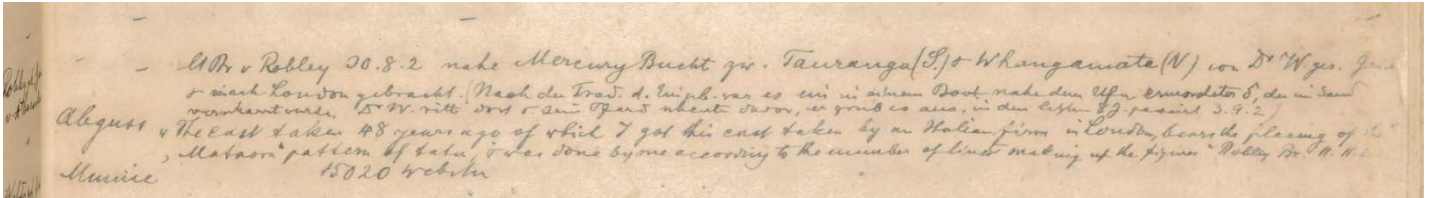 lt Br v Robley 30.8.2 nahe Mercury Bucht zw. Tauranga (S.) & Whangamata (N) von Dr W ges.
& nach London gebracht. (Nach der Trad. d. Eingeb. war es ein in einem Boot nahe dem Ufer ermordeter, der im Sand
verscharrt wurde. Dr W. ritt dort & sein Pferd scheute davor, er grub es aus, in den letzten J. passirt 3.9.2)
Abguss v The cast taken 48 years ago of which I got this cast taken by an Italian firm in London, bears the placing of the
"Mataora" pattern of tatu, & was done by me according to the number of lines making up the figures" Robley Br.
Mumie 15020 Webster